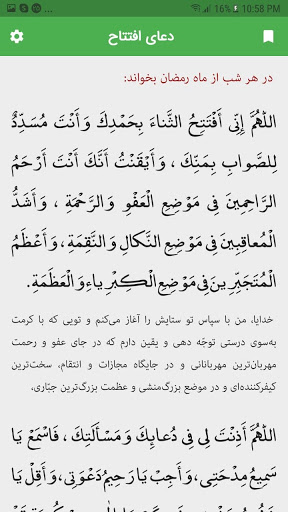 16% 10:58 PM
دعای افتتاح
در هر شب از ماه رمضان بخواند:
اَللّٰهُمَّ إِنِّی أَفْتَتِحُ الثَّناءَ بِحَمْدِكَ وَ أَنْتَ مُسَدِّدٌ
لِلصَّوابِ بِمَنِّكَ ، وَ أَیْقَنْتُ أَنَّكَ أَنْتَ أَرْحَمُ
الرَّاحِمِینَ فِی مَوْضِعِ الْعَفْوِ وَالرَّحْمَةِ ، وَ أَشَدُّ
الْمُعاقِبِینَ فِی مَوْضِعِ النَّكالِ وَ النَّقِمَةِ، وَ أَعْظَمُ
الْمُتَجَبِّرِینَ فِی مَوْضِعِ الْكِبْرِیاءِ وَ الْعَظَمَةِ.
خدایا، من با سپاس تو ستایش را آغاز می‌کنم و تویی که با کرمت
به‌سوی درستی توجّه دهی و یقین دارم که در جای عفو و رحمت
مهربان‌ترین مهربانانی و در جایگاه مجازات و انتقام، سخت‌ترین
کیفرکننده‌ای و در موضع بزرگ‌منشی و عظمت بزرگ‌ترین جبّاری.
اَللّٰهُمَّ أَذِنْتَ لِی فِی دُعائِكَ وَ مَسْأَلَتِكَ ، فَاسْمَعْ یَا
سَمِیعُ مِدْحَتِی، وَ أَجِبْ یَا رَحِیمُ دَعْوَتِی، وَ أَقِلْ یَا